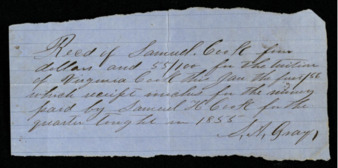 Recd of Samuel Cook five
dollars and 55/100 for the tuition
of Virginia Cook this Jan the first 56
which receipt involves for the money
paid by Samuel H Cook for the
quarter taught in 1855
S. A. Gray